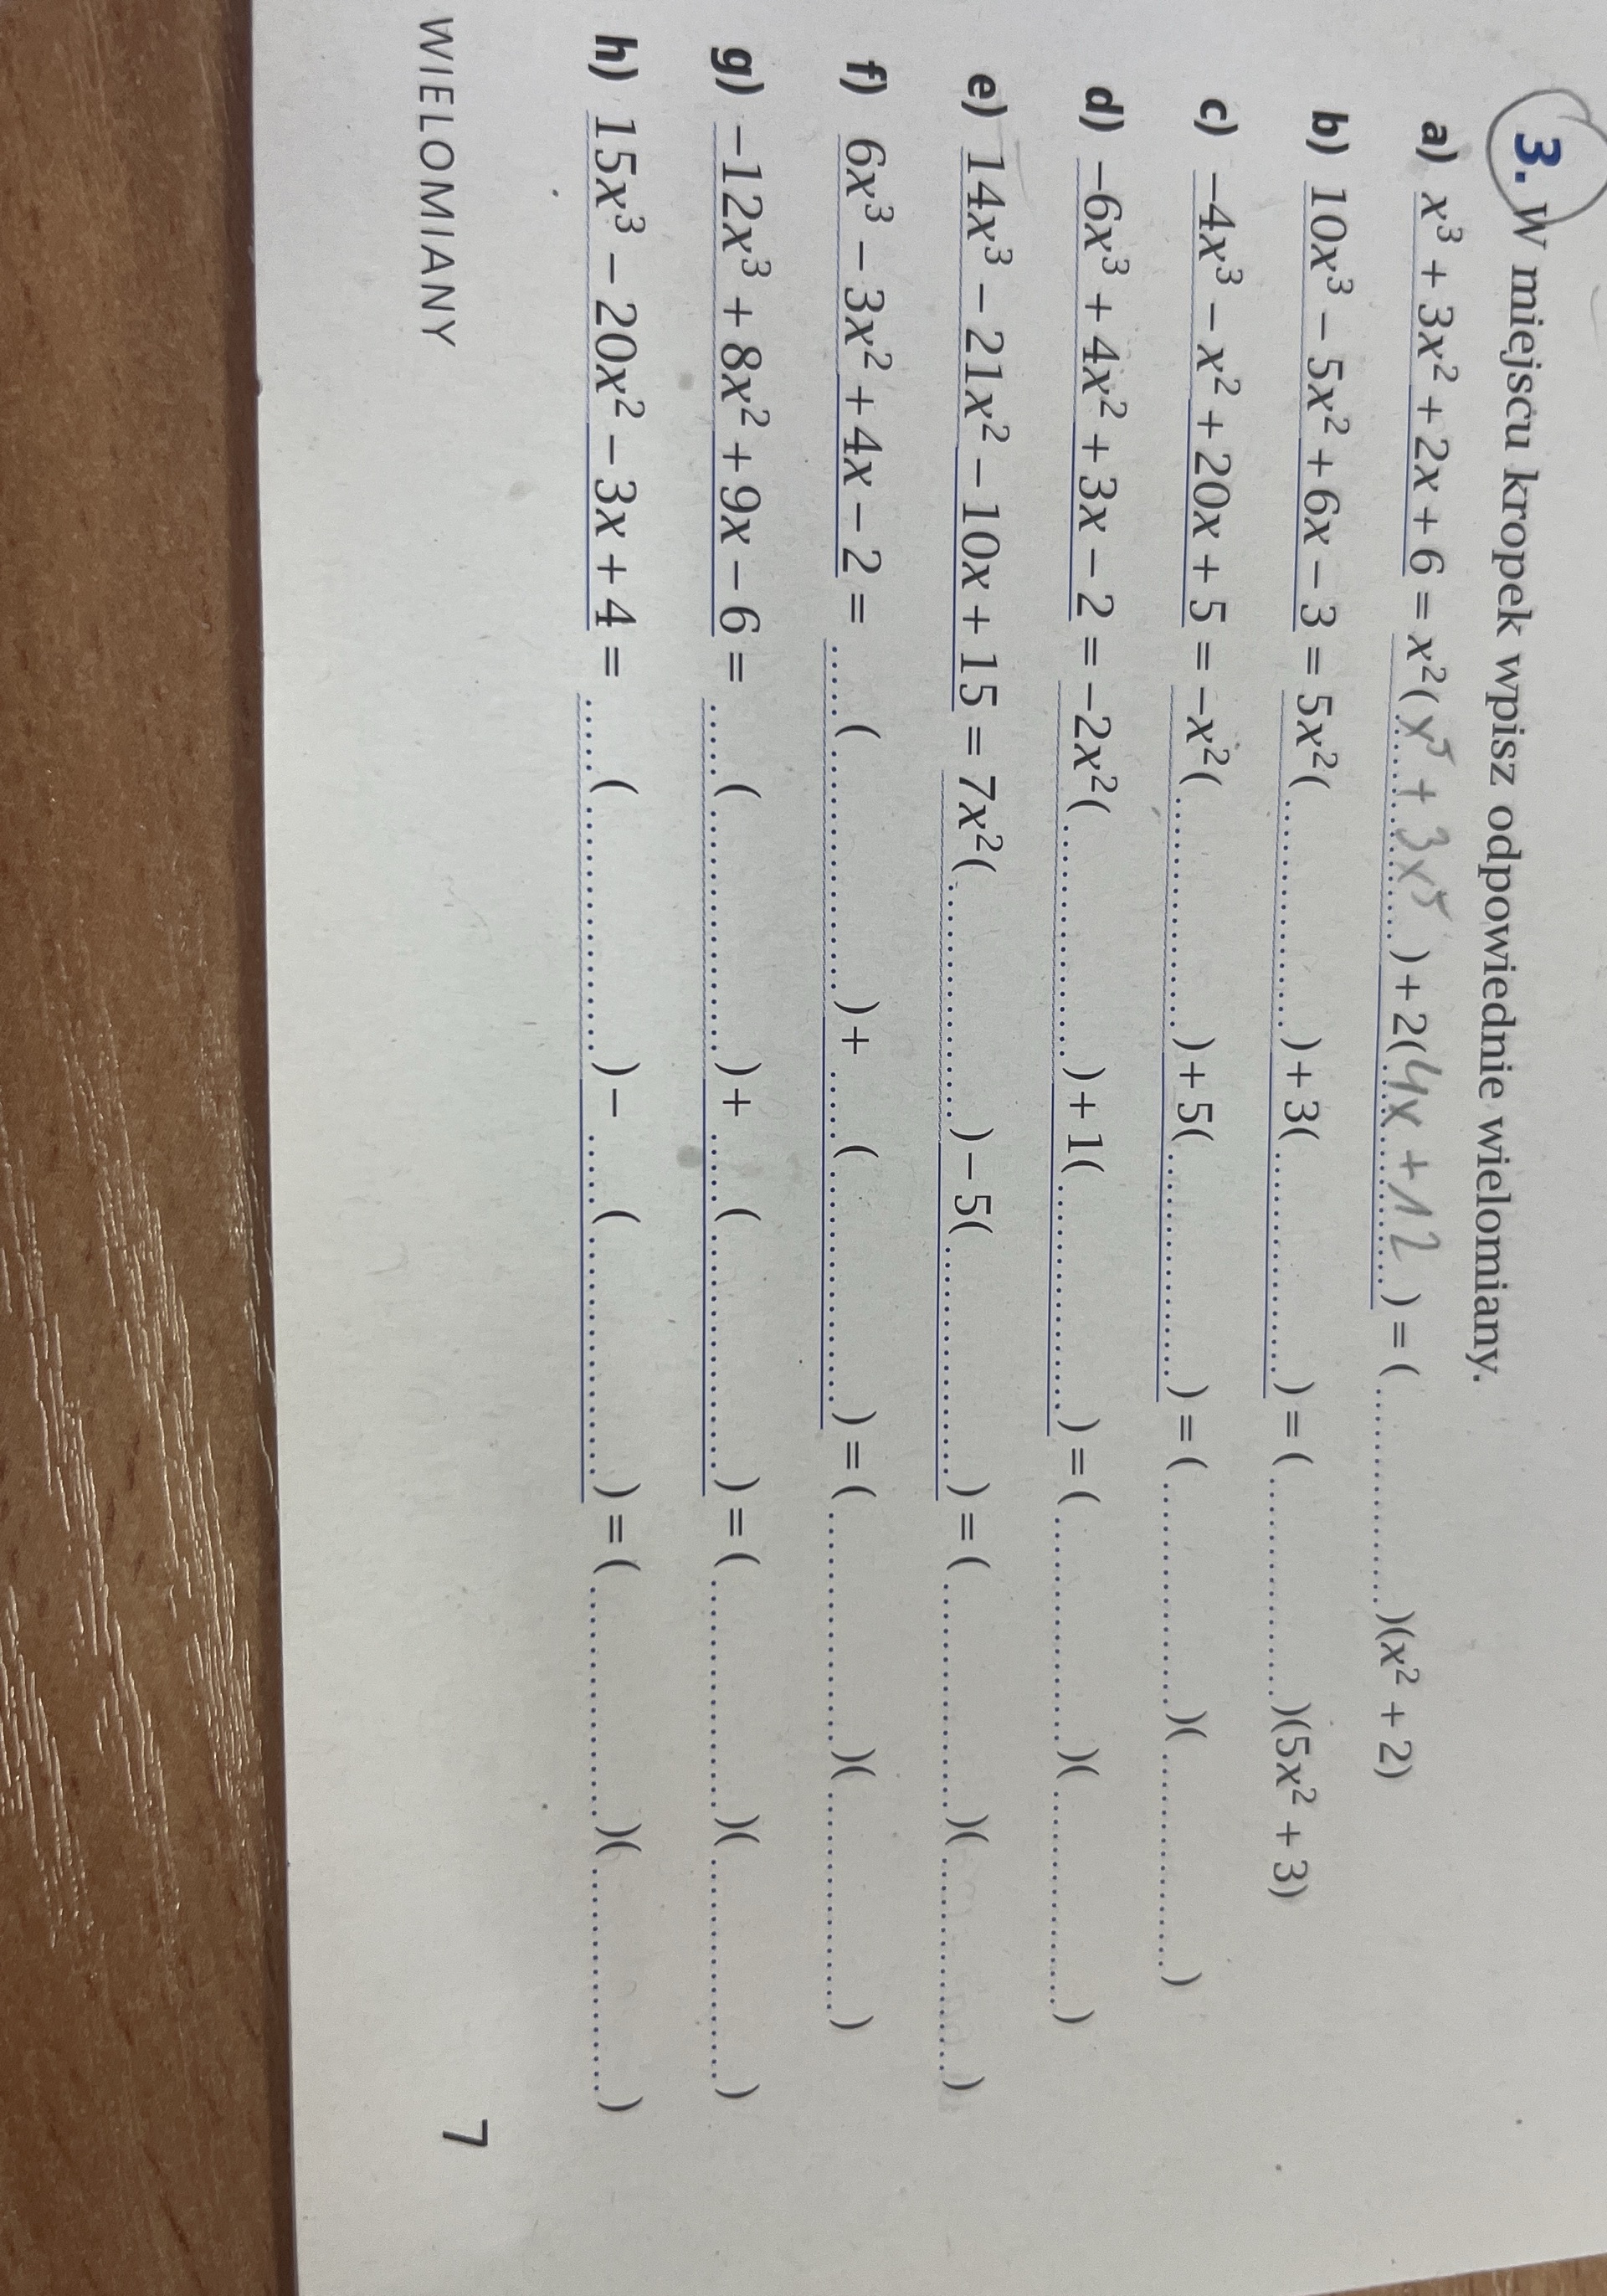 3. W miejscu kropek wpisz odpowiednie wielomiany.
a) x³ + 3x² + 2x + 6 = x²( x⁵ + 3x⁵ ) + 2( 4x + 12 ) = ( .................... )(x² + 2)
b) 10x³ − 5x² + 6x − 3 = 5x²( .................... ) + 3( .................... ) = ( .................... )(5x² + 3)
c) −4x³ − x² + 20x + 5 = −x²( .................... ) + 5( .................... ) = ( .................... )( .................... )
d) −6x³ + 4x² + 3x − 2 = −2x²( .................... ) + 1( .................... ) = ( .................... )( .................... )
e) 14x³ − 21x² − 10x + 15 = 7x²( .................... ) − 5( .................... ) = ( .................... )( .................... )
f) 6x³ − 3x² + 4x − 2 = ...... ( .................... ) + ...... ( .................... ) = ( .................... )( .................... )
g) −12x³ + 8x² + 9x − 6 = ...... ( .................... ) + ...... ( .................... ) = ( .................... )( .................... )
h) 15x³ − 20x² − 3x + 4 = ...... ( .................... ) − ...... ( .................... ) = ( .................... )( .................... )
WIELOMIANY
7